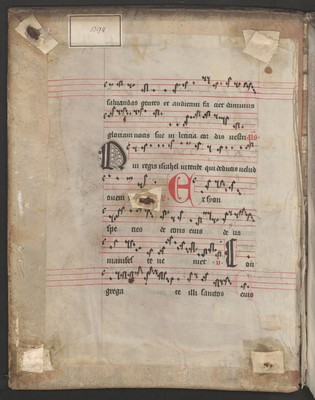 salvandas gentes et auditam fa ciet dominus
gloriam vocis sue in leticia cor dis vestri Ps
Qui regis israhel intende qui deducis velud
ovem E x syon
spe cies de coris eius de us
manifes te ve niet V. Con
grega te illi sanctos eius